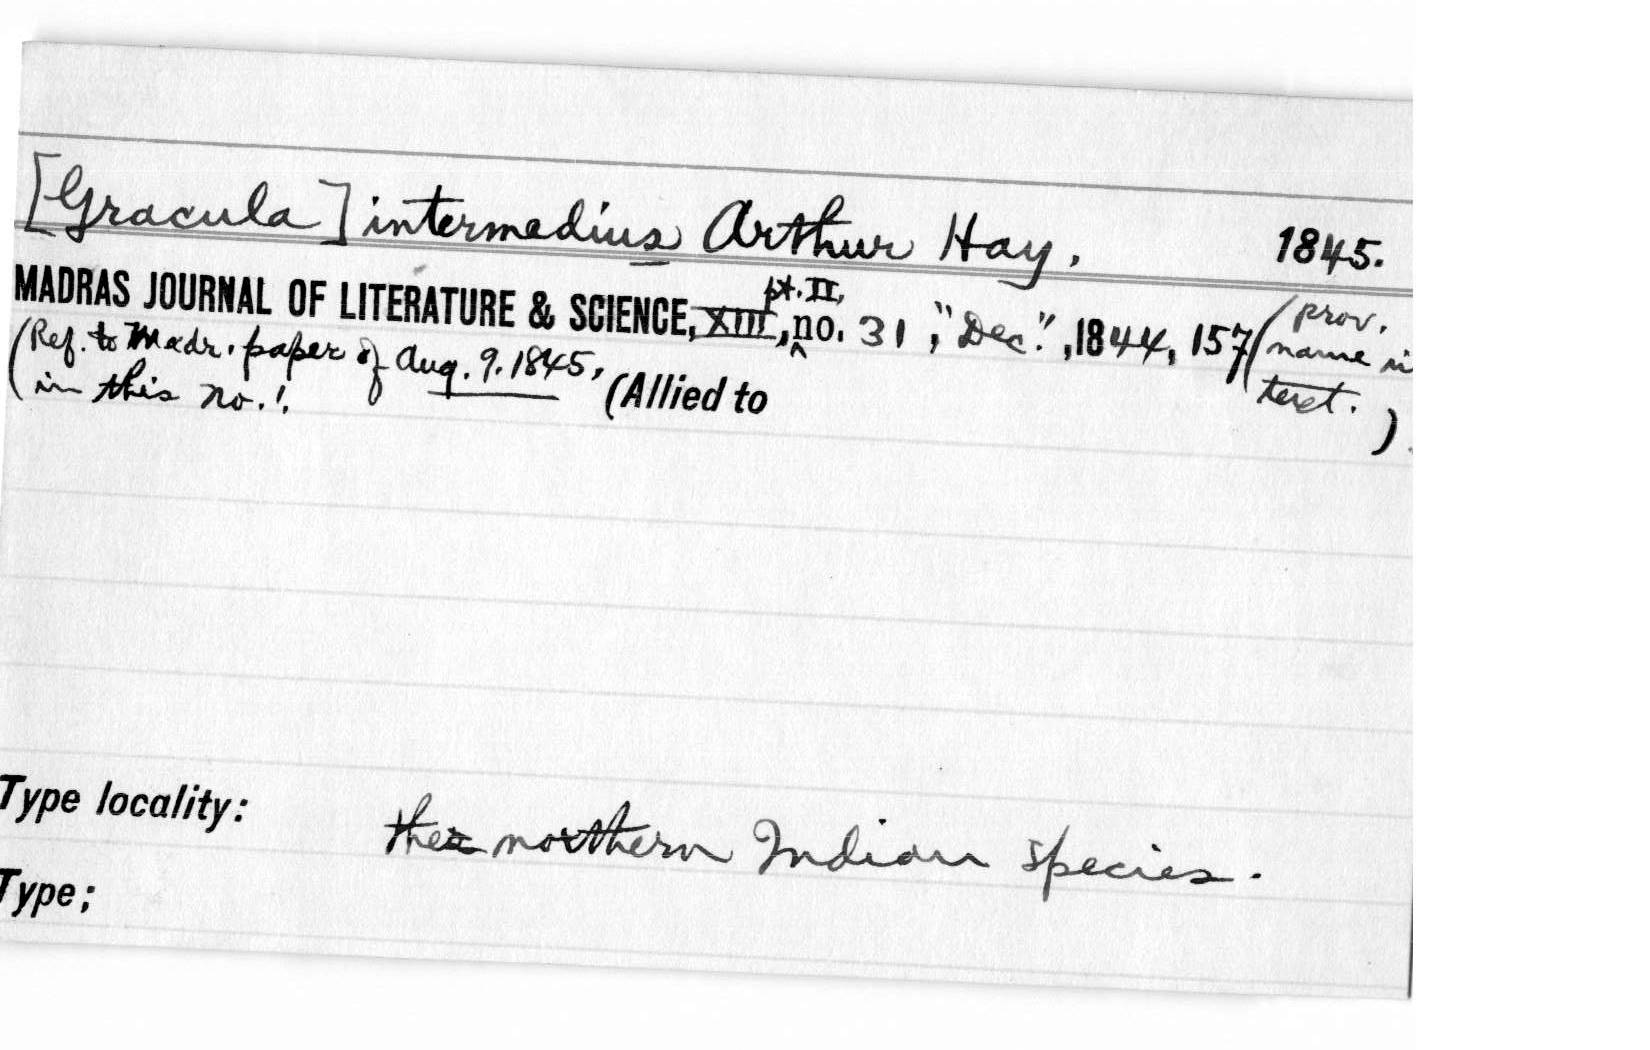 [Gracula] intermedius Arthur Hay. 1845.
MADRAS JOURNAL OF LITERATURE & SCIENCE, XIII, pt. II, no. 31, "Dec.", 1844, 157 (prov.
(Ref. to Madr. paper of Aug. 9. 1845, name in
in this no.!. (Allied to text. )
Type locality: the northern Indian species.
Type;